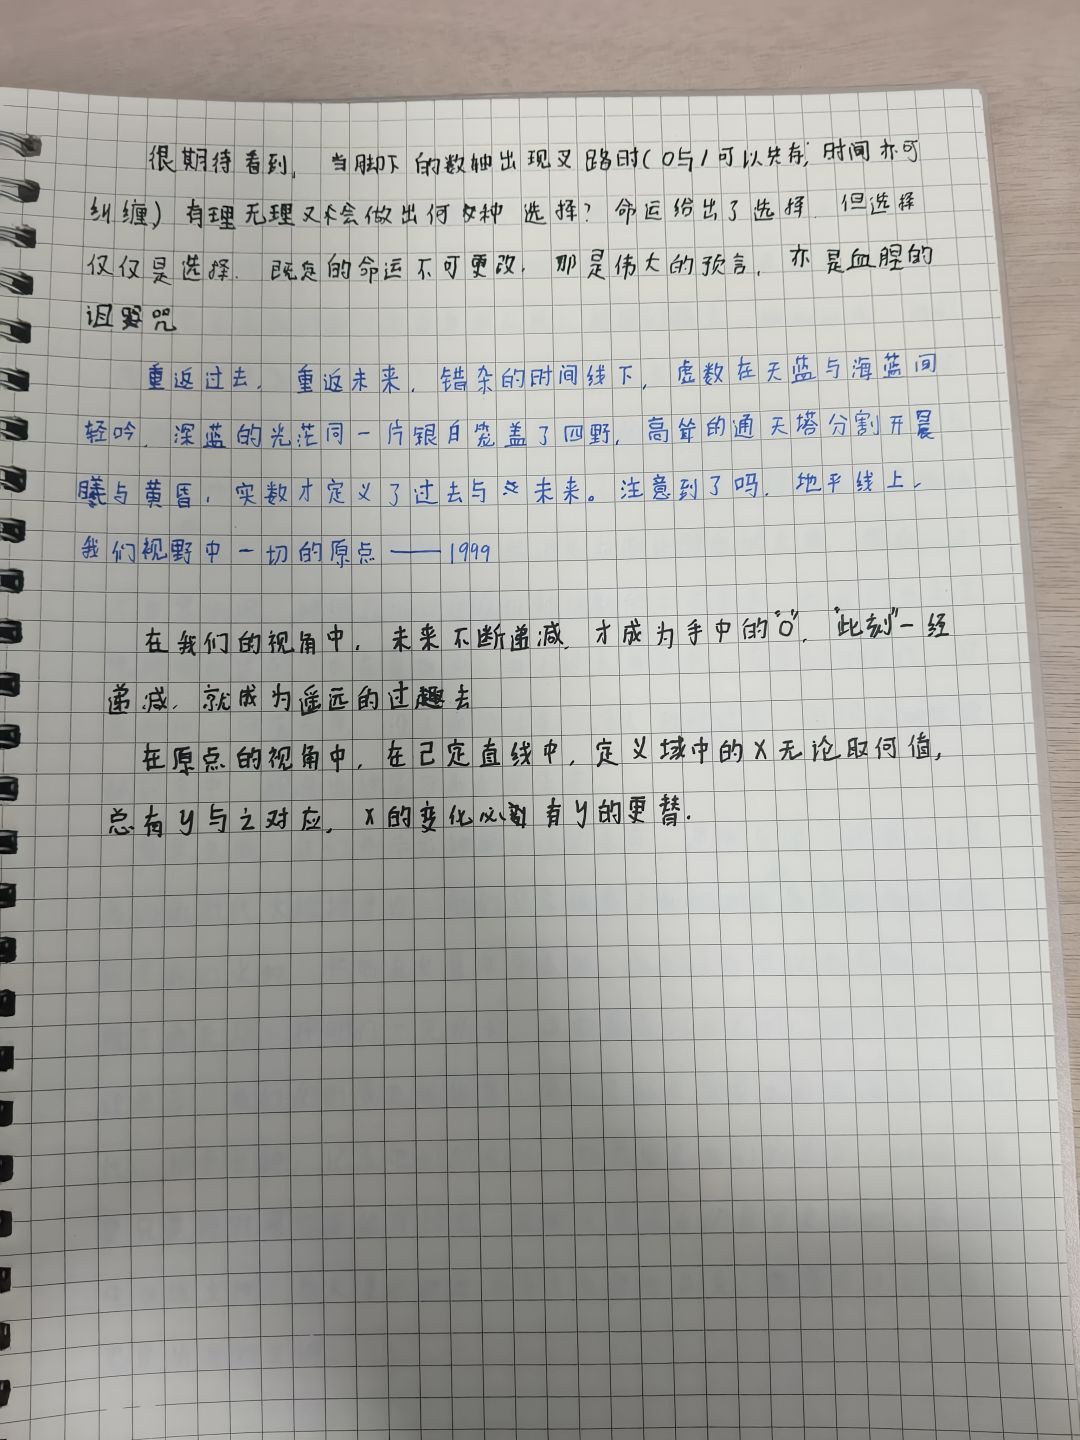 很期待看到,当脚下的数轴出现叉路时(0与1可以共存,时间亦可
纠缠)有理无理又会做出何种选择?命运给出了选择.但选择
仅仅是选择.既定的命运不可更改.那是伟大的预言,亦是血腥的
诅咒
重返过去,重返未来,错杂的时间线下,虚数在天蓝与海蓝间
轻吟.深蓝的光茫同一片银白笼盖了四野,高耸的通天塔分割开晨
曦与黄昏,实数才定义了过去与未来。注意到了吗,地平线上,
我们视野中一切的原点——1999
在我们的视角中,未来不断递减,才成为手中的"0","此刻"一经
递减,就成为遥远的过去
在原点的视角中,在已定直线中,定义域中的X无论取何值,
总有y与之对应,x的变化必有y的更替.